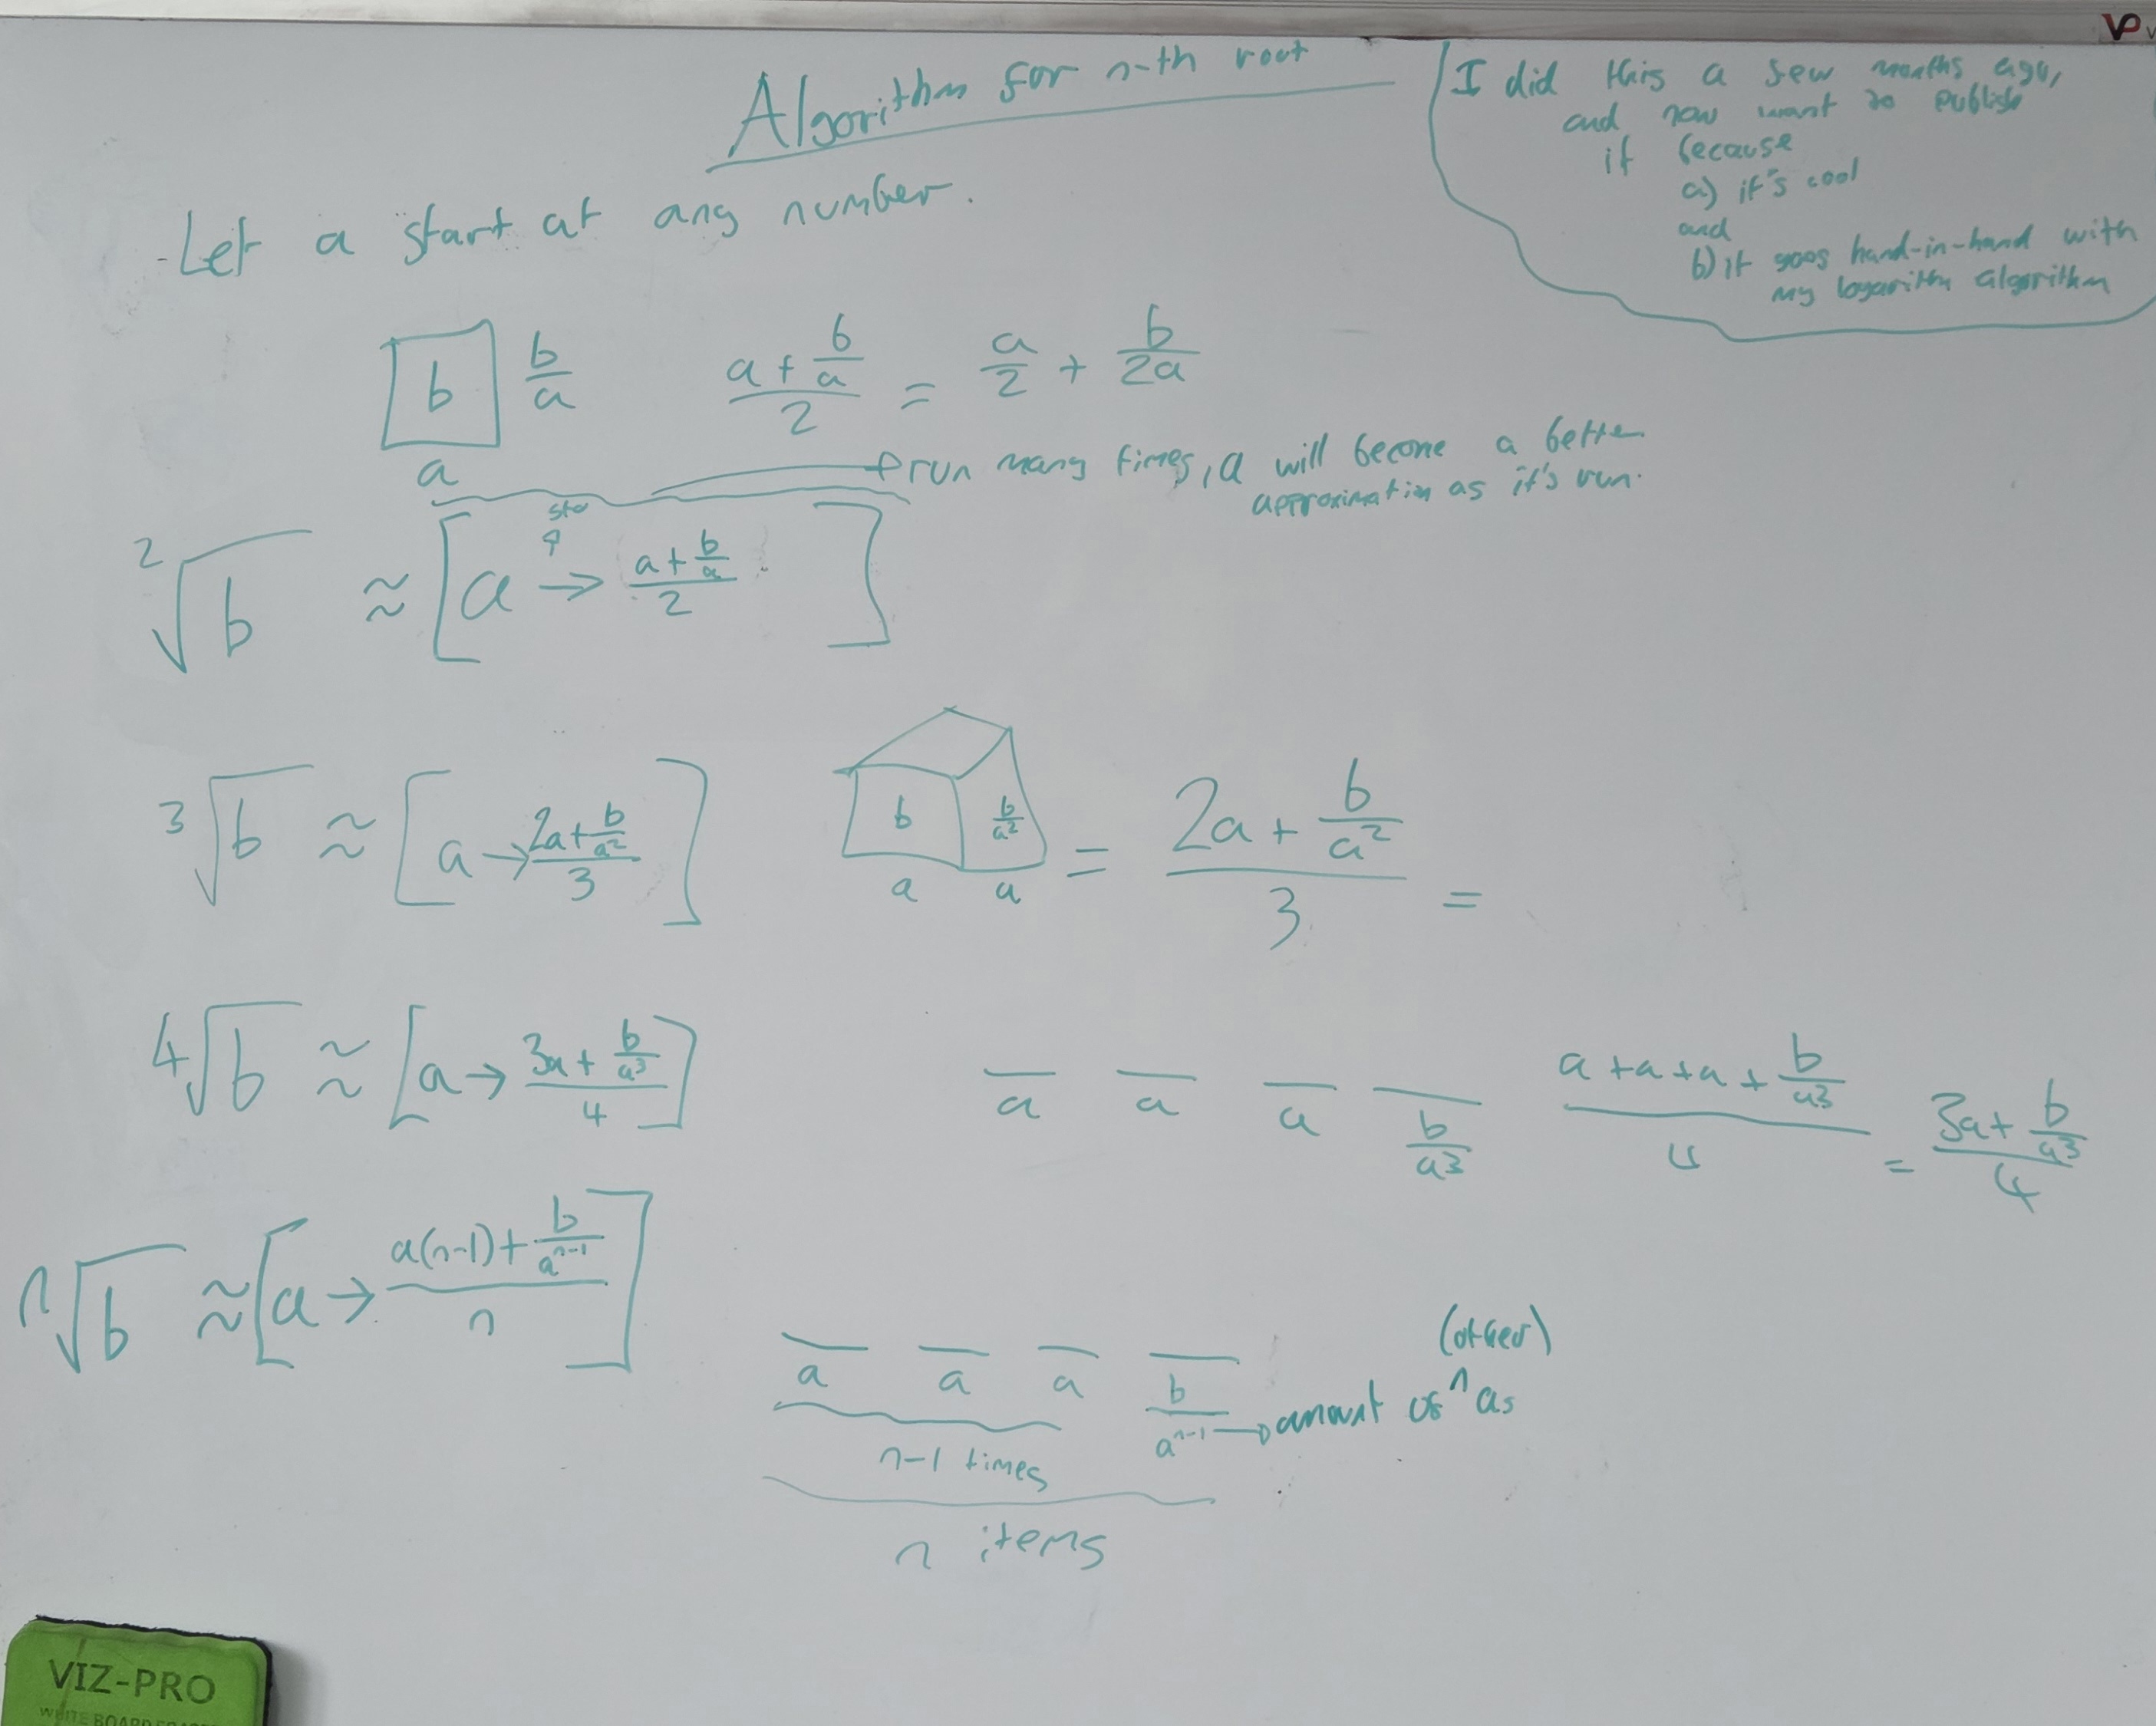 Algorithm for n-th root
I did this a few months ago,
and now want to publish
it because
a) it's cool
and
b) it goes hand-in-hand with
my logarithm algorithm
Let a start at any number.
b b/a (a + b/a)/2 = a/2 + b/2a
a
run many times, a will become a better
approximation as it's run.
sto
²√b ≈ [a → (a + b/a)/2]
³√b ≈ [a → (2a + b/a²)/3] b b/a² = (2a + b/a²)/3 =
a a
⁴√b ≈ [a → (3a + b/a³)/4] a a a b/a³ (a + a + a + b/a³)/4 = (3a + b/a³)/4
ⁿ√b ≈ [a → (a(n-1) + b/aⁿ⁻¹)/n]
(other)
a a a b/aⁿ⁻¹ → amount of ^ as
n-1 times
n items
VIZ-PRO
WHITEBOARD ERASER
VP